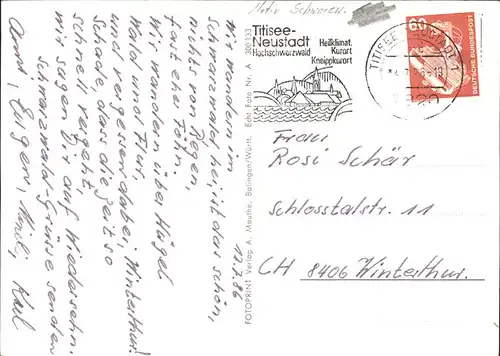 Motiv Schwarzw.
Titisee-
Neustadt
Hochschwarzwald
Heilklimat.
Kurort
Kneippkurort
TITISEE-NEUSTADT 1
60
DEUTSCHE BUNDESPOST
17.7.86
Wir wandern im
Schwarzwald hei, ist das schön,
nicht von Regen
fast ehe Föhn.
Wir wandern über Hügel
Wald und Flur,
und vergessen dabei, Winterthur!
Schade, dass die Zeit so
schnell vergeht,
wir sagen Dir auf Wiedersehn.
Schwarzwald-Grüsse senden
Eugen,
FOTOPRINT Verlag A. Mauthe, Balingen/Württ. Echt Foto Nr. A 300 133
Frau
Rosi Schär
Schlosstalstr. 11
CH 8406 Winterthur